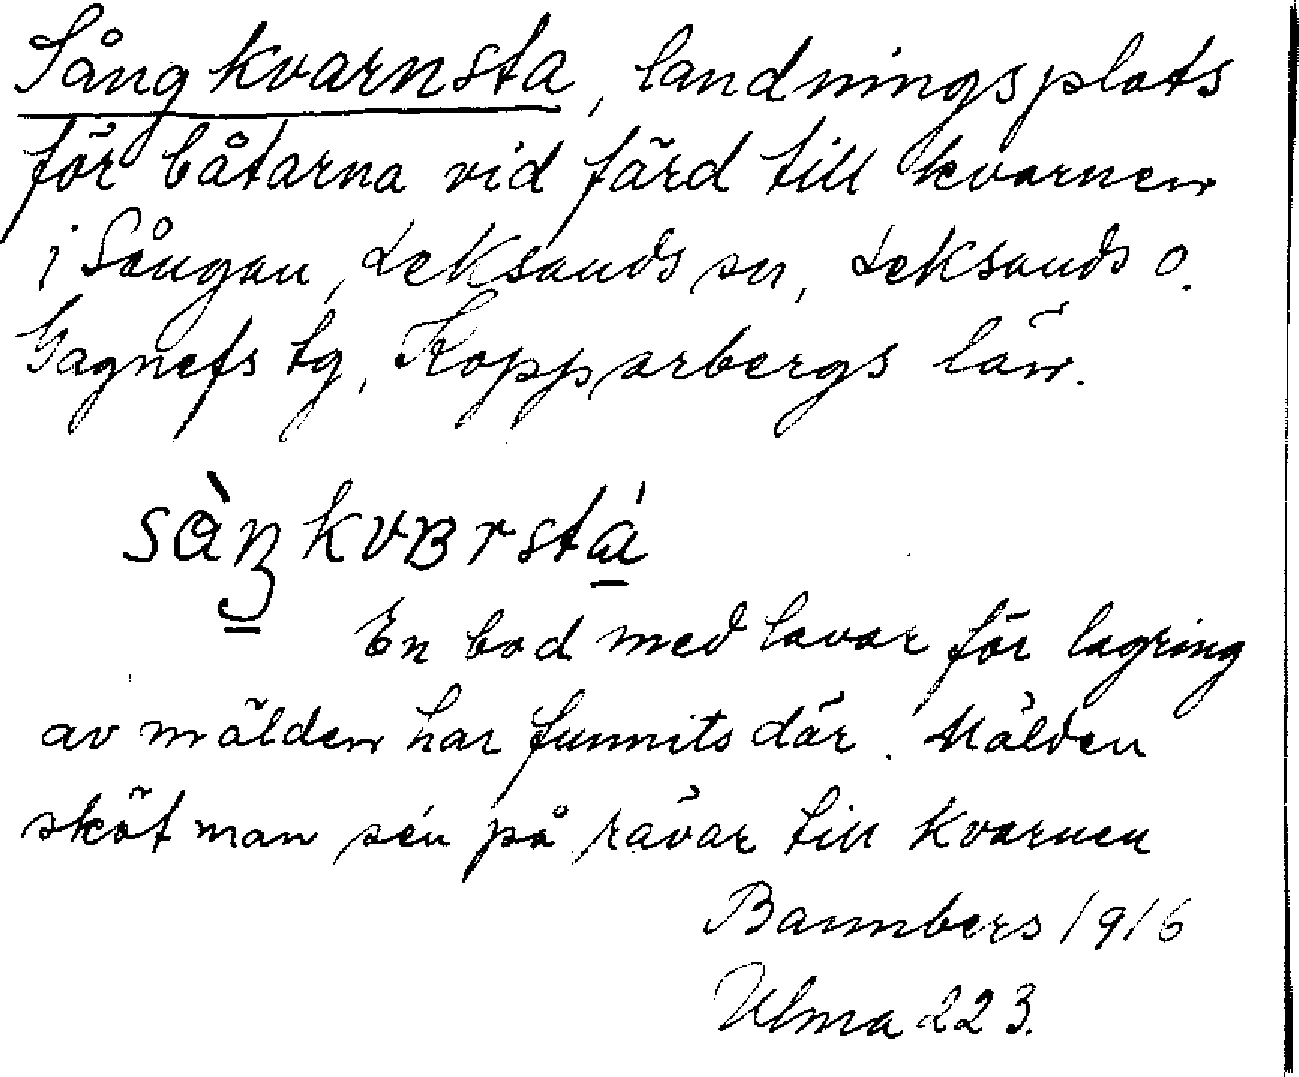 Sångkvarnsta, landningsplats
för båtarna vid färd till kvarnen
i Sångan, Leksands sn, Leksands o.
Gagnefs tg, Kopparbergs län.
sàŋkvʙrstá
En bod med lavar för lagring
av mälden har funnits där. Mälden
sköt man sén på rävar till kvarnen
Bannbers 1916
Ulma 223.